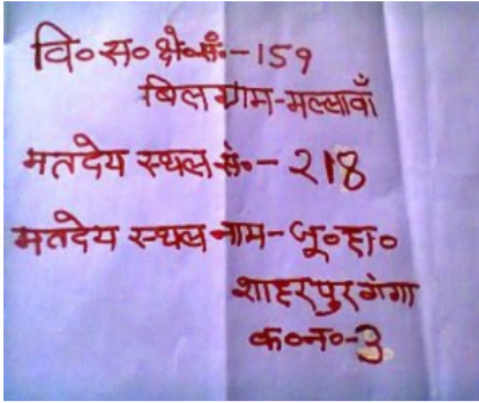 वि०स०क्षे०सं०-159
बिलग्राम-मल्लावाँ
मतदेय स्थल सं०-218
मतदेय स्थल नाम-जू०हा०
शाहरपुरगंगा
क०न०-3